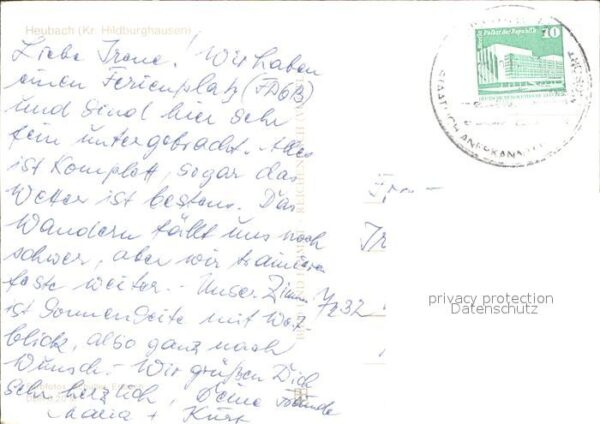 Heubach (Kr. Hildburghausen)
Liebe Irene! Wir haben
einen Ferienplatz (FDGB)
und sind hier sehr
fein untergebracht. Alles
ist komplett, sogar das
Wetter ist bestens. Das
Wandern fällt uns noch
schwer, aber wir trainieren
feste weiter. - Unser Zimmer
ist Sonnenseite mit
blick, also ganz nach
Wunsch. - Wir grüßen Dich
sehr herzlich, Deine Freunde
+ Kurt
Palast der Republik
10
STAATLICH ANERKANNTER
Frau
7232
privacy protection
Datenschutz